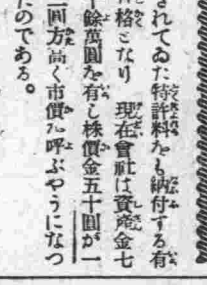 されてゐた特許料をも納付する有
格となり 現在會社は資產金七
十餘萬圓を有し株價金五十圓が一
二圓方高く市價を呼ぶやうになつ
たのである。